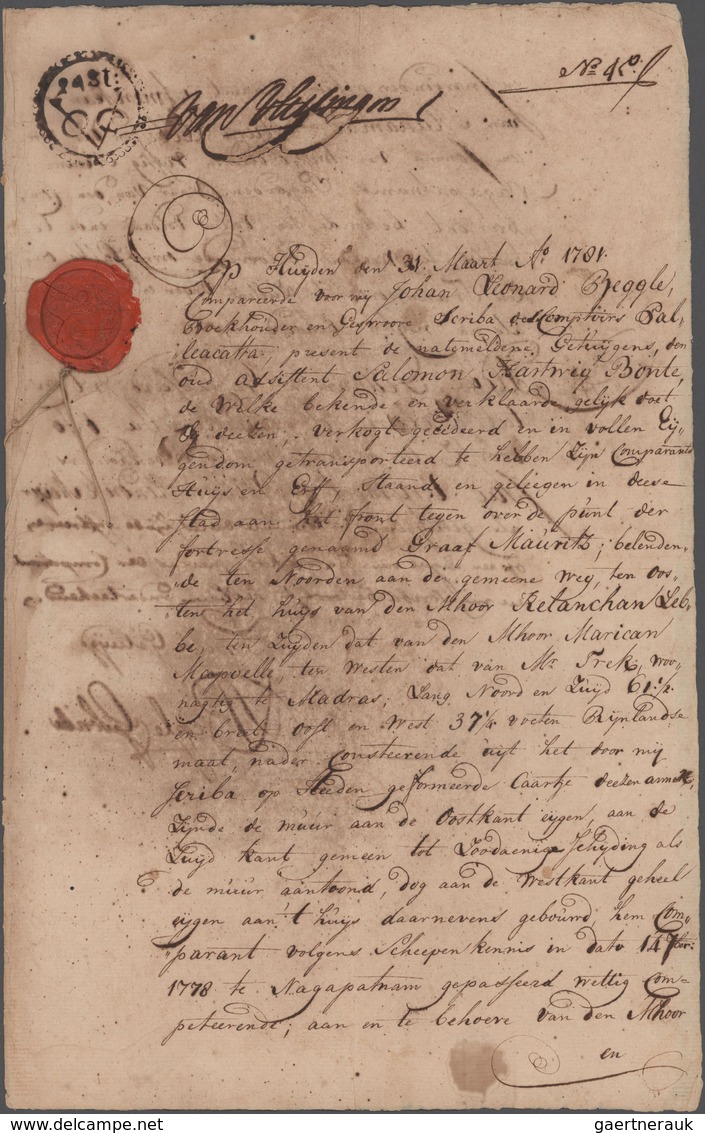 24 St:
N.o 40.
van Vlissingen
Op Huyden den 31. Maart A.o 1781.
Compareerde voor mij Johan Leonard Beggle,
Boekhouder en Geswoore Scriba des Comptoirs Pal„
„leacatta, present de natemeldene Getuygens, den
oud adsistent Salomon, Hartwig Bonte,
de welke bekende en verklaarde gelijk doet
bij deesen, verkogt gecedeerd en in vollen Ey„
gendom, getransporteerd te hebben zijn Comparants
Huijs en Erff, staande en geleegen in deese
stad aan het front tegen over de punt der
fortresse genaamd Graaf Maurits; belenden„
„de ten Noorden aan de gemeene weg, ten Oos„
„ten het huijs van den Mhoor Retanchan Leb„
be, ten Zuyden dat van den Mhoor Marican
Mapoelle, ten Westen dat van Mr. Trek, woo„
nagtig te Madras; Lang Noord en Zuyd 61.1/2
en breet Oost en West 37 1/4 voeten Rijnlandse
maat, nader Consteerende uijt het door mij
Scriba op Heeden geformeerde Caartje deezen annex,
Zijnde de muur aan de Oostkant eijgen, aan de
Zuyd kant gemeen tot Zoodaenige schijding als
de muur aantoond, dog aan de Westkant geheel
eijgen aan 't huijs daarnevens gebouwd, hem Com„
„parant volgens Scheepen kennis in dato 14
1778 te Nagapatnam gepasseerd wettig Com„
peteerende; aan en te behoeve van den Mhoor
en
gaertnerauk